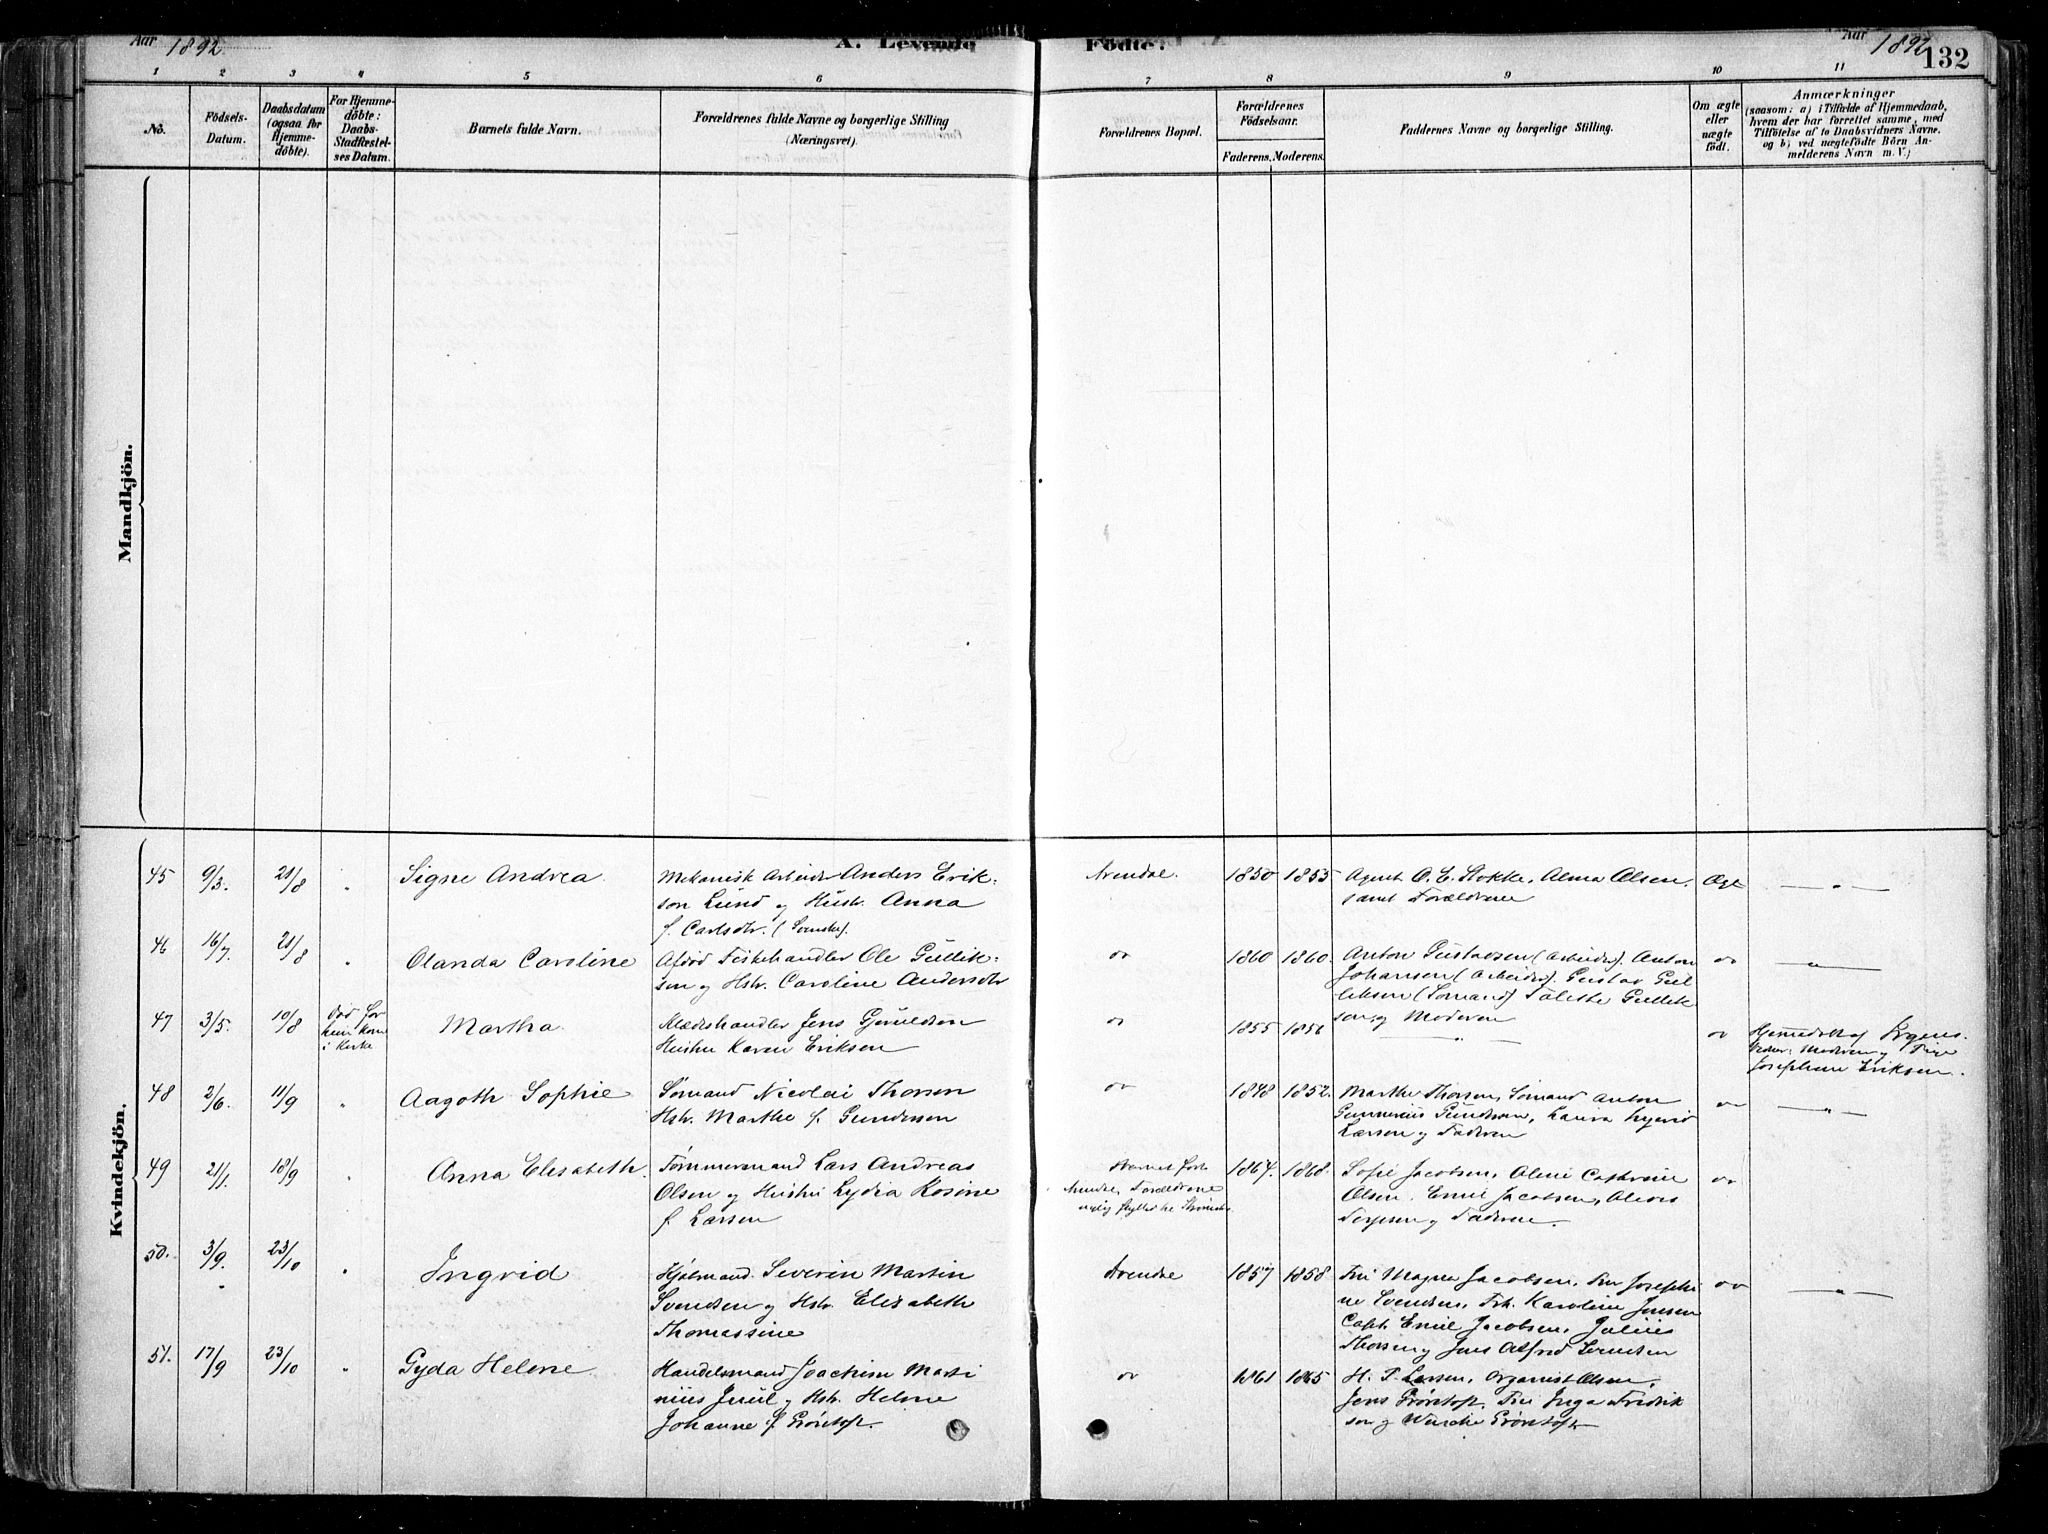 Aar 1892.
A. Levende
Födte.
Aar 1892
132
1 2 3 4 5 6 7 8 9 10 11
No.
Födsels-
Datum.
Daabsdatum
(ogsaa for
Hjemme-
döbte).
For Hjemme-
döbte:
Daabs-
Stadfæstel-
ses Datum.
Barnets fulde Navn.
Forældrenes fulde Navne og borgerlige Stilling
(Næringsvei).
Forældrenes Bopæl.
Forældrenes
Födselsaar.
Faderens. Moderens.
Faddernes Navne og borgerlige Stilling.
Om ægte
eller
uægte
födt.
Anmærkninger
(saasom: a) i Tilfælde af Hjemmedaab,
hvem der har forrettet samme, med
Tilföielse af to Daabsvidners Navne.
og b) ved uægtefödte Börn An-
melderens Navn m. V.)
Mandkjön.
Kvindekjön.
45 9/3. 21/8 "
Signe Andrea
Mekanisk Arbeider Anders Erik-
son Lund og Hustr. Anna
f. Carlsdtr. (Svenske).
Arendal. 1850 1853
Agent O. E. Stokke, Alma Olsen.
samt Forældrene
Ægt
— " —
46 16/7. 21/8 "
Olanda Caroline
Afdød Fiskehandler Ole Gullik-
son og Hstr. Caroline Andersdtr
do 1860 1860.
Anton Gustavsen (Arbeider). Anton
Johansen (Arbeider). Gustav Gul
liksen (Sømand) Gullik
sen og Moderen
do
— " —
47 3/5. 10/8
død før
hun kom
i Kirke
Martha
Klædeshandler Jens
Hustru Karen Eriksen
do 1855 1856
— " —
do
Hjemmedøbt af
Moderen og
Josephine Eriksen.
48 2/6. 11/9 "
Aagoth Sophie
Sømand Nicolai Thorsen
Hstr. Marthe f. Gundersen
do 1848 1852.
Marthe Thorsen, Sømand Anton
Gundersen, Laura
Larsen og Faderen
do
— " —
49 21/1. 18/9 "
Anna Elisabeth
Tømmermand Lars Andreas
Olsen og Hustru Lydia Rosine
f. Larsen
Barnet født
Arendal, Forældrene
nylig flyttet til
1867. 1868.
Sofie Jacobsen, Oline Cathrine
Olsen. Emil Jacobsen,
Terjesen og Faderen.
do
50. 3/9. 23/10 "
Ingrid
Severin Martin
Svendsen og Hstr. Elisabeth
Thomassine
Arendal 1857 1858
Fru Magna Jacobsen. Fru Josephi
ne Svendsen. Frk. Karoline Jensen
Capt. Emil Jacobsen, Julius
Thorsen og Jens Alfred Svendsen
do
— " —
51. 17/9 23/10 "
Gyda Helene
Handelsmand Joachim Marti
nius Juul og Hstr. Helene
Johanne f. Gröntoft.
do 1861 1865
H. P. Larsen. Organist Olsen,
Jens Gröntoft. Fru Inga Fredrik
sen og Gröntoft